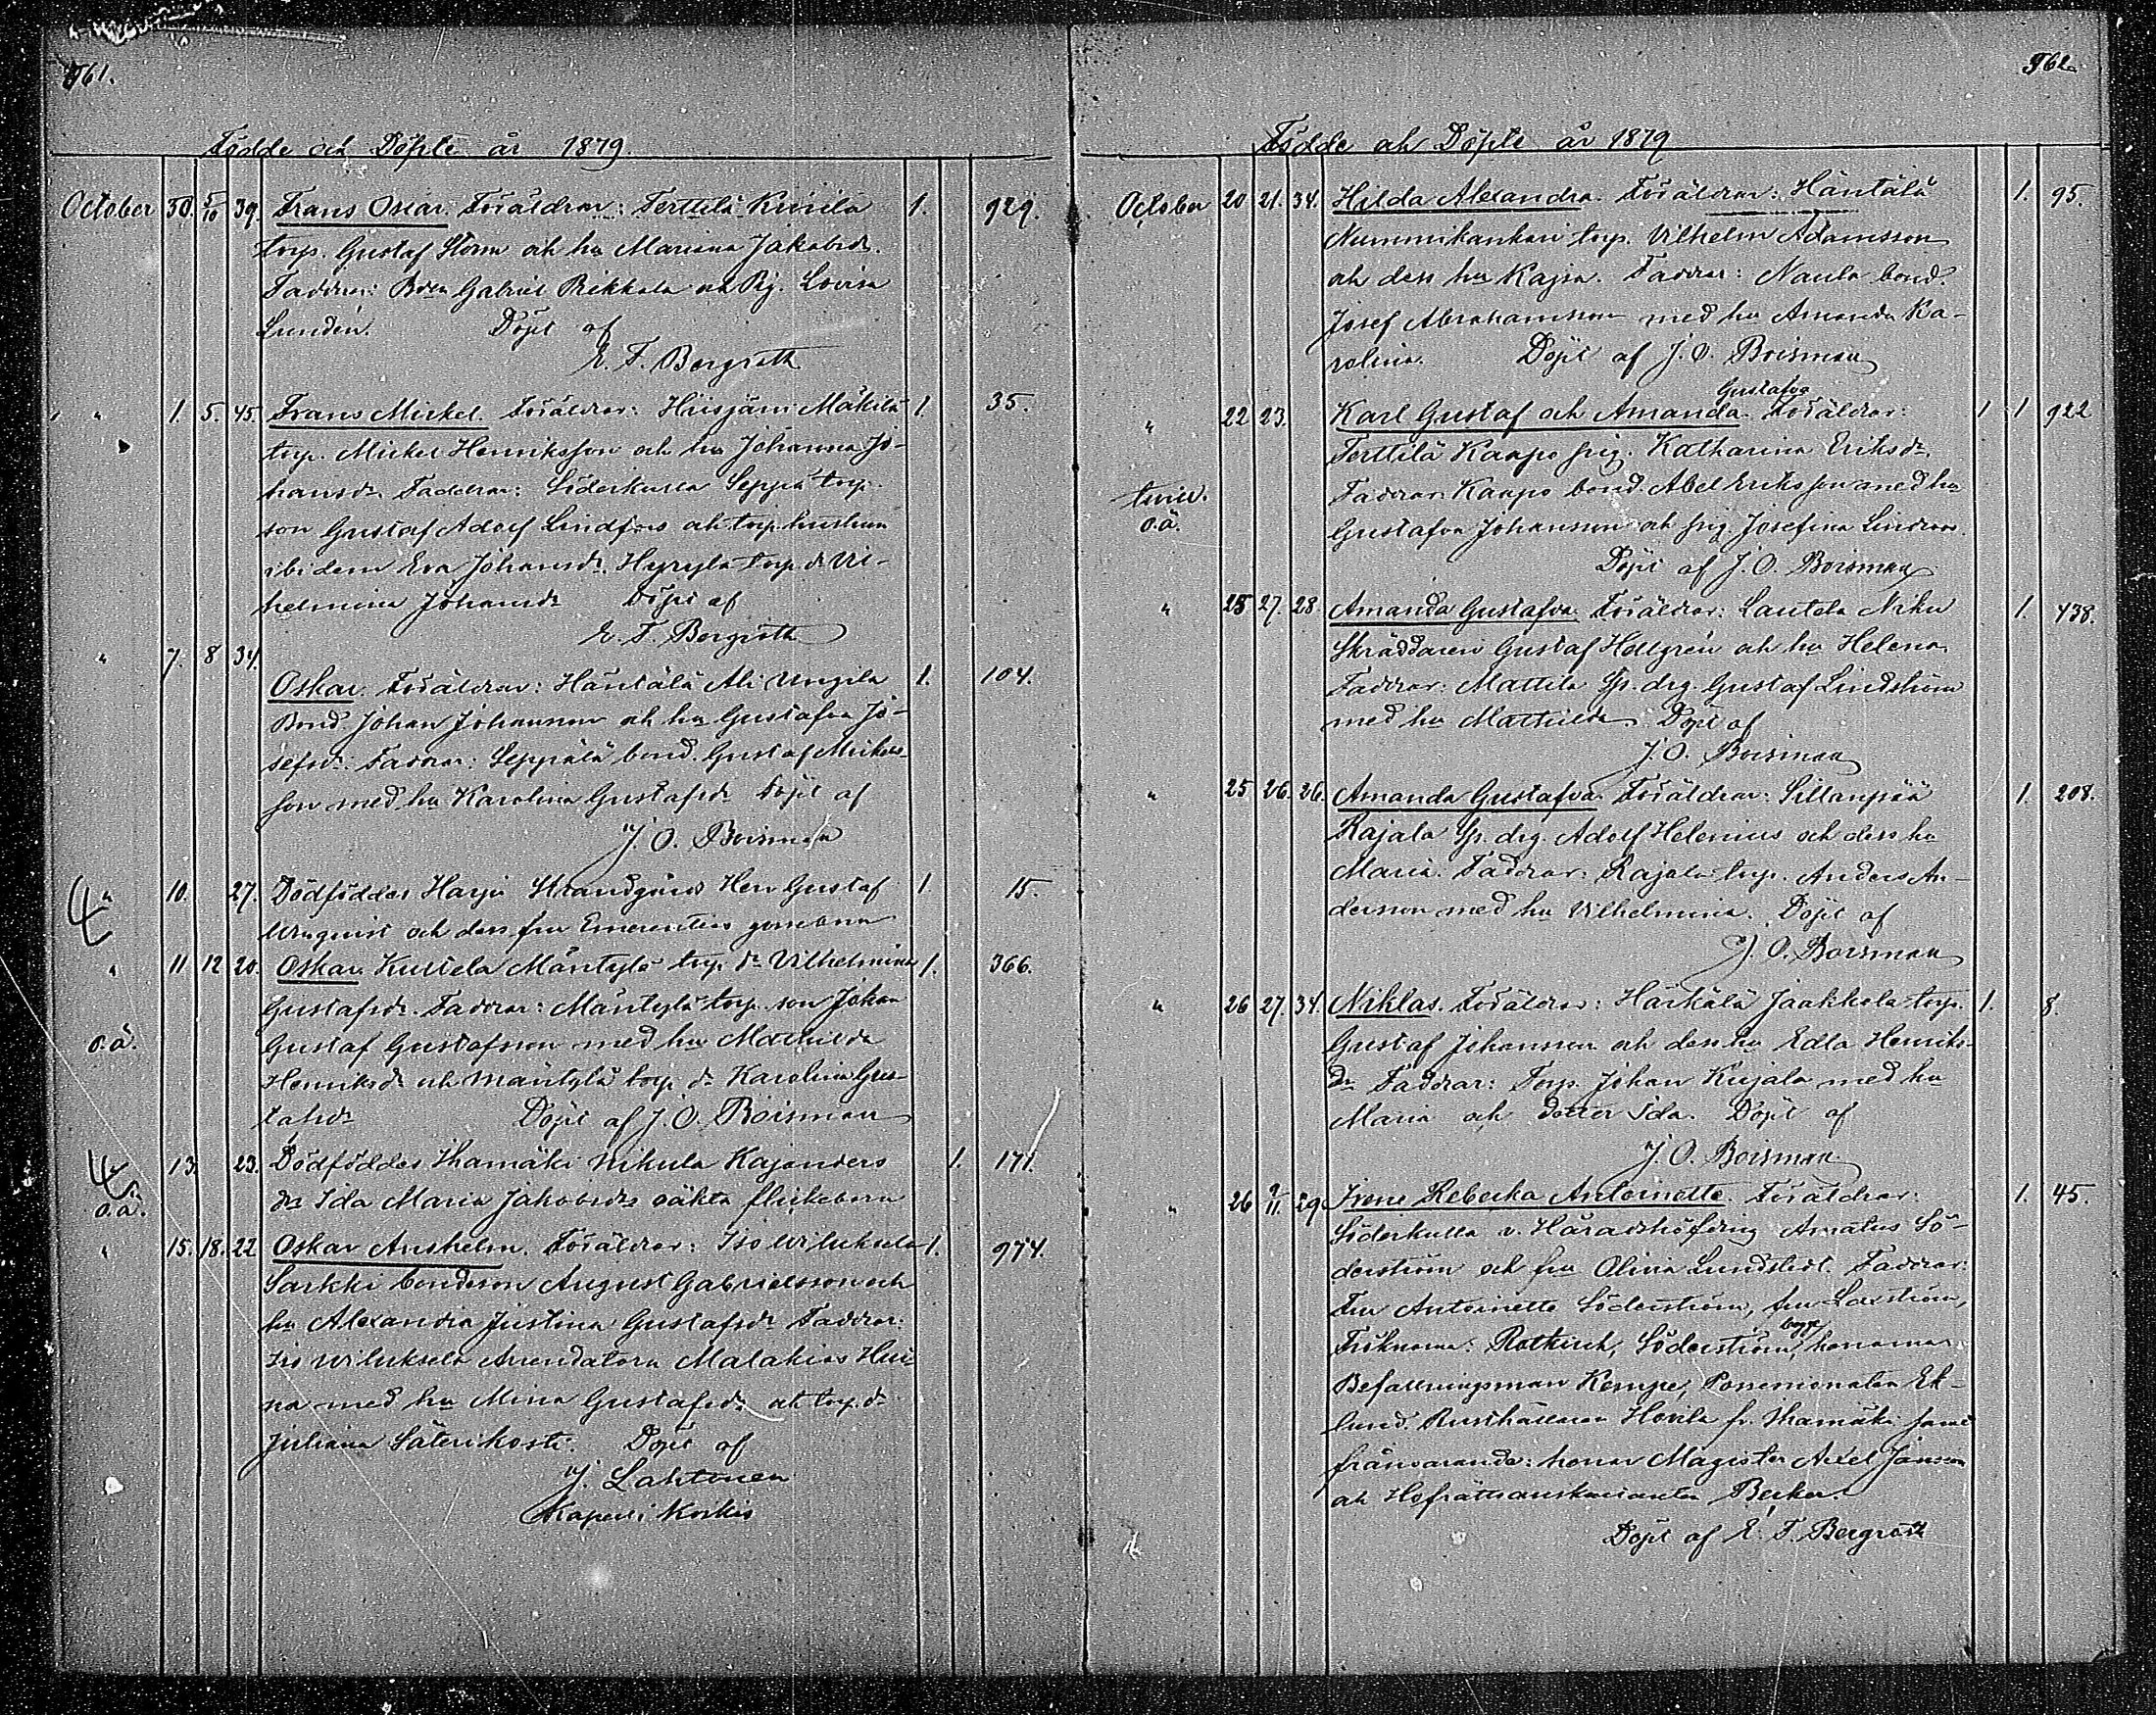 961.
Födde och Döpte år 1879.
October 30. 5/10 39. Frans Oscar. Föräldrar: Terttilä Kivilä 1. 929.
torp. Gustaf Storm och hu Mariana Jakobsdr.
Faddrar: Bden Gabriel Rekkala och Pig. Lovisa
Lundén. Döpt af
E. F. Bergroth
" 1. 5. 45. Frans Mickel. Föräldrar: Hiisjärvi Mäkilä 1. 35.
torp. Mickel Henriksson och hu Johanna Jo-
hansdr. Faddrar: Söderkulla Seppä torp.
son Gustaf Adolf Lindfors och torp. hustrun
ibidem Eva Johansdr. Hyrylä torp. dr Vil-
helmina Johansdr Döpt af
E. F. Bergroth
" 7. 8 34.
Oskar. Föräldrar: Häntälä Ali Ungila 1. 104.
Bond. Johan Johansson och hu Gustafva Jo-
sefsdr. Faddrar: Seppälä bond. Gustaf Mickels-
son med hu Karolina Gustafsdr Döpt af
J. O. Boisman
" 10. 27. Dödföddes Harju Strandgård Herr Gustaf 1. 15.
och dess fru Emerentias gossebarn
" 11 12 20. Oskar. Kuttela Mäntylä torp. dr Vilhelmina 1. 366.
Gustafsdr. Faddrar: Mäntylä torp. son Johan
o.ä. Gustaf Gustafsson med hu Mathilda
Henriksdr och Mäntylä torp. dr Karolina Gus-
tafsdr Döpt af J. O. Boisman
13. 23. Dödföddes Ihamäki Nikula Kajanders 1. 171.
o.ä. dr Ida Maria Jakobsdrs oäkta flickebarn
" 15. 18. 22. Oskar Anshelm. Föräldrar: Iso Wiluksela 1. 974.
Sarkki bondeson August Gabrielsson och
hu Alexandra Justina Gustafsdr Faddrar:
Iso Wiluksela Arrendatorn Malakias Hei-
na med hu Mina Gustafsdr och torp. dr
Juliana Säterikoski. Döpt af
J. Lahtonen
Kapell i Koskis
962.
Födde och Döpte år 1879
October 20 21. 34. Hilda Alexandra. Föräldrar: Häntälä 1. 95.
Nummikankari torp. Vilhelm Adamsson
och dess hu Kajsa. Faddrar: Naula bond.
Josef Abrahamsson med hu Amanda Ka-
rolina. Döpt af J. O. Boisman
Gustafva
" 22 23. Karl Gustaf och Amanda. Föräldrar: 1 1 922
Terttilä Kaapo pig. Katharina Eriksdr.
tvill. Faddrar: Kaapo bond. Abel Eriksson med hu
o.ä. Gustafva Johansson och pig. Josefina Lindroos.
Döpt af J. O. Boisman
" 25 27. 28. Amanda Gustafva. Föräldrar: Lautela Niku 1. 438.
Skräddaren Gustaf Hellgrén och hu Helena
Faddrar: Mattila Sp. drg. Gustaf Lindström
med hu Mathilda. Döpt af
J. O. Boisman
" 25 26. 26. Amanda Gustafva. Föräldrar: Sillanpää 1. 208.
Rajala Sp. drg. Adolf Helenius och dess hu
Maria. Faddrar: Rajala torp. Anders An-
dersson med hu Vilhelmina. Döpt af
J. O. Boisman
" 26 27. 34. Niklas. Föräldrar: Härkälä Jaakkola torp. 1. 8.
Gustaf Johansson och dess hu Edla Henriks-
dr Faddrar: Torp. Johan Kujala med hu
Maria och dotter Ida. Döpt af
J. O. Boisman
" 26 9/11. 29 Irene Rebecka Antoinette. Föräldrar: 1. 45.
Söderkulla v. Häradshöfding Amatus Sö-
derström och fru Olivia Lundstedt. Faddrar:
Fru Antoinette Söderström, fru Laxström,
bägge
Fröknarna: Rotkirch, Söderström, herrarna
Befallningsman Kempe, Possessionaten Ek-
lund. Rusthållaren Hovila fr. Ihamäki samt
frånvarande: herrar Magister Axel Jansson
och Hofrättsauskultanten Becker.
Döpt af E. F. Bergroth